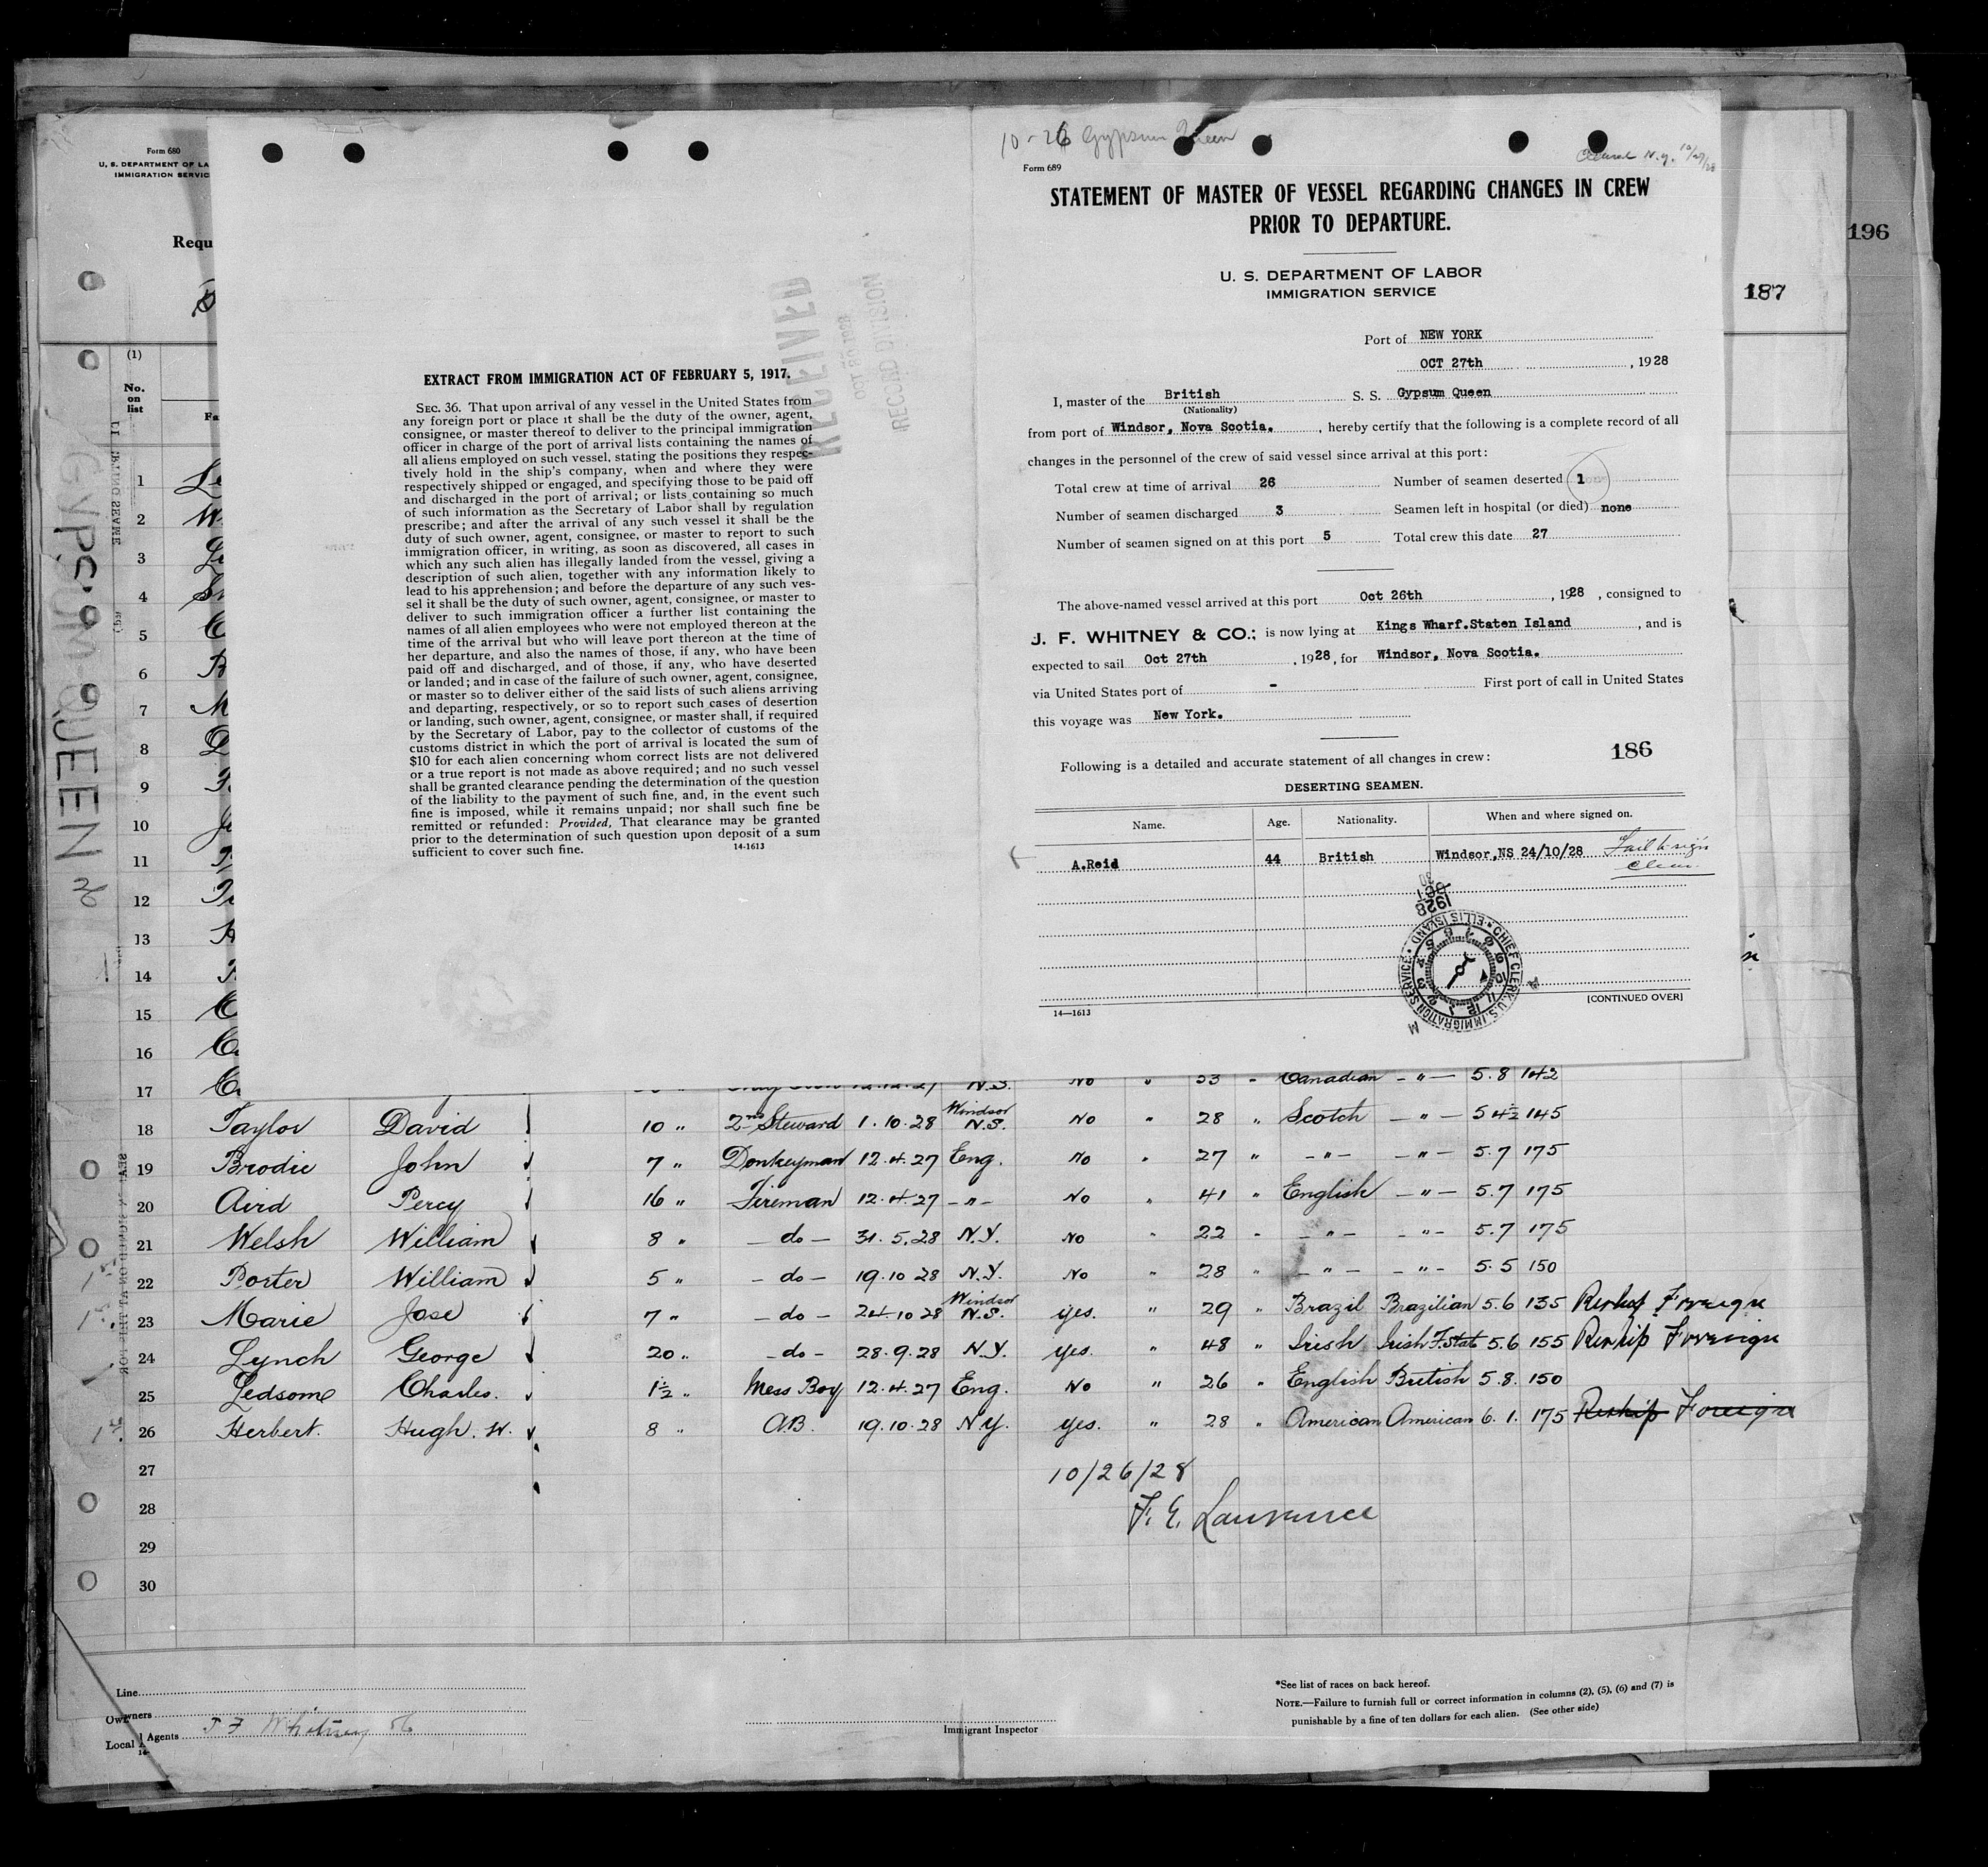 Form 680
U. S. DEPARTMENT OF LA
IMMIGRATION SERVIC
Requ
196
187
(1)
No.
on
list
Fa
1 Le
2 W
3
4
5 C
6 B
7 M
8
9
10
11
12
13
14
15 C
16
17
GYPSUM QUEEN 26
EXTRACT FROM IMMIGRATION ACT OF FEBRUARY 5, 1917.
SEC. 36. That upon arrival of any vessel in the United States from
any foreign port or place it shall be the duty of the owner, agent,
consignee, or master thereof to deliver to the principal immigration
officer in charge of the port of arrival lists containing the names of
all aliens employed on such vessel, stating the positions they respec-
tively hold in the ship's company, when and where they were
respectively shipped or engaged, and specifying those to be paid off
and discharged in the port of arrival; or lists containing so much
of such information as the Secretary of Labor shall by regulation
prescribe; and after the arrival of any such vessel it shall be the
duty of such owner, agent, consignee, or master to report to such
immigration officer, in writing, as soon as discovered, all cases in
which any such alien has illegally landed from the vessel, giving a
description of such alien, together with any information likely to
lead to his apprehension; and before the departure of any such ves-
sel it shall be the duty of such owner, agent, consignee, or master to
deliver to such immigration officer a further list containing the
names of all alien employees who were not employed thereon at the
time of the arrival but who will leave port thereon at the time of
her departure, and also the names of those, if any, who have been
paid off and discharged, and of those, if any, who have deserted
or landed; and in case of the failure of such owner, agent, consignee,
or master so to deliver either of the said lists of such aliens arriving
and departing, respectively, or so to report such cases of desertion
or landing, such owner, agent, consignee, or master shall, if required
by the Secretary of Labor, pay to the collector of customs of the
customs district in which the port of arrival is located the sum of
$10 for each alien concerning whom correct lists are not delivered
or a true report is not made as above required; and no such vessel
shall be granted clearance pending the determination of the question
of the liability to the payment of such fine, and, in the event such
fine is imposed, while it remains unpaid; nor shall such fine be
remitted or refunded: Provided, That clearance may be granted
prior to the determination of such question upon deposit of a sum
sufficient to cover such fine.
14-1613
RECEIVED
OCT 30 1928
RECORD DIVISION
10-26 Gypsum Queen
Cleared N.Y. 10/27/28
Form 689
STATEMENT OF MASTER OF VESSEL REGARDING CHANGES IN CREW
PRIOR TO DEPARTURE.
U. S. DEPARTMENT OF LABOR
IMMIGRATION SERVICE
Port of NEW YORK
OCT 27th, 1928
I, master of the British S. S. Gypsum Queen
(Nationality)
from port of Windsor, Nova Scotia., hereby certify that the following is a complete record of all
changes in the personnel of the crew of said vessel since arrival at this port:
Total crew at time of arrival 26 Number of seamen deserted 1
Number of seamen discharged 3 Seamen left in hospital (or died) none
Number of seamen signed on at this port 5 Total crew this date 27
The above-named vessel arrived at this port Oct 26th, 1928, consigned to
J. F. WHITNEY & CO.; is now lying at Kings Wharf.Staten Island, and is
expected to sail Oct 27th, 1928, for Windsor, Nova Scotia.
via United States port of - First port of call in United States
this voyage was New York.
186
Following is a detailed and accurate statement of all changes in crew:
DESERTING SEAMEN.
Name. Age. Nationality. When and where signed on.
A.Reid 44 British Windsor,NS 24/10/28 Fail to sign
Clear.
1928
OCT
30
CHIEF CLERK, U.S. IMMIGRATION SERVICE • ELLIS ISLAND •
[CONTINUED OVER]
14—1613
N.S. No " 33 " Canadian - " - 5.8 142
18 Taylor David 10 " 2nd Steward 1.10.28 Windsor N.S. No " 28 " Scotch - " - 5 4½ 145
19 Brodie John 7 " Donkeyman 12.4.27 Eng. No " 27 " - " - - " - 5.7 175
20 Aird Percy 16 " Fireman 12.4.27 - " - No " 41 " English - " - 5.7 175
21 Welsh William 8 " - do - 31.5.28 N.Y. No " 22 " - " - - " - 5.7 175
22 Porter William 5 " - do - 19.10 28 N.Y. No " 28 " - " - - " - 5.5 150
23 Marie Jose 7 " - do - 24.10 28 Windsor N.S. yes. " 29 " Brazil Brazilian 5.6 135 Reship Foreign
24 Lynch George 20 " - do - 28.9.28 N.Y. yes. " 48 " Irish Irish F.State 5.6 155 Reship Foreign
25 Ledsome Charles. 1½ " Mess Boy 12.4.27 Eng. No " 26 " English British 5.8. 150
26 Herbert. Hugh. W. 8 " A.B. 19.10.28 N.Y. yes. " 28 " American American 6.1. 175 Reship Foreign
27
28
29
30
10/26/28
F. E. Lawrence
Line
Owners
Local Agents J F Whitney
Immigrant Inspector
*See list of races on back hereof.
NOTE.—Failure to furnish full or correct information in columns (2), (5), (6) and (7) is
punishable by a fine of ten dollars for each alien. (See other side)